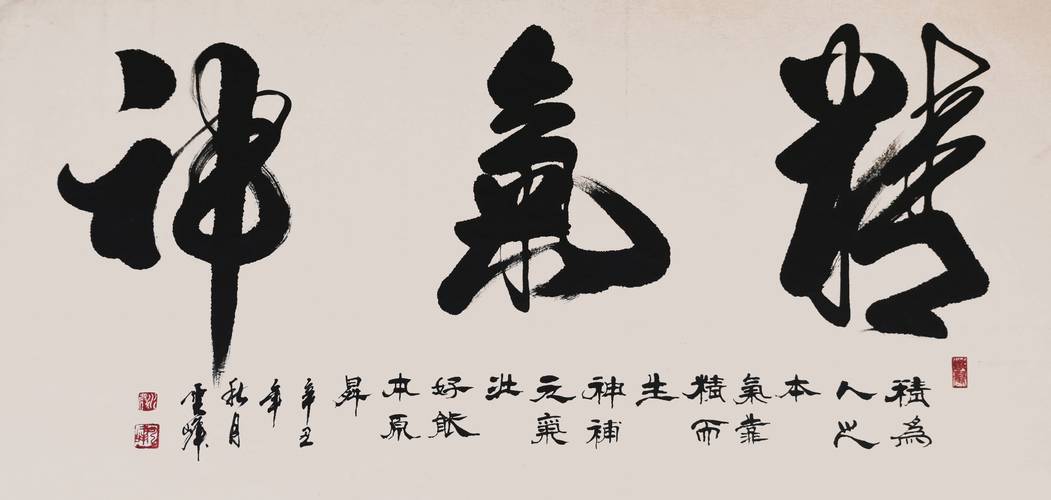 精氣神
精為
人之
本
氣靠
精而
生
神補
元氣
壯
好能
本原
昇
辛丑
年
秋月
雲峰